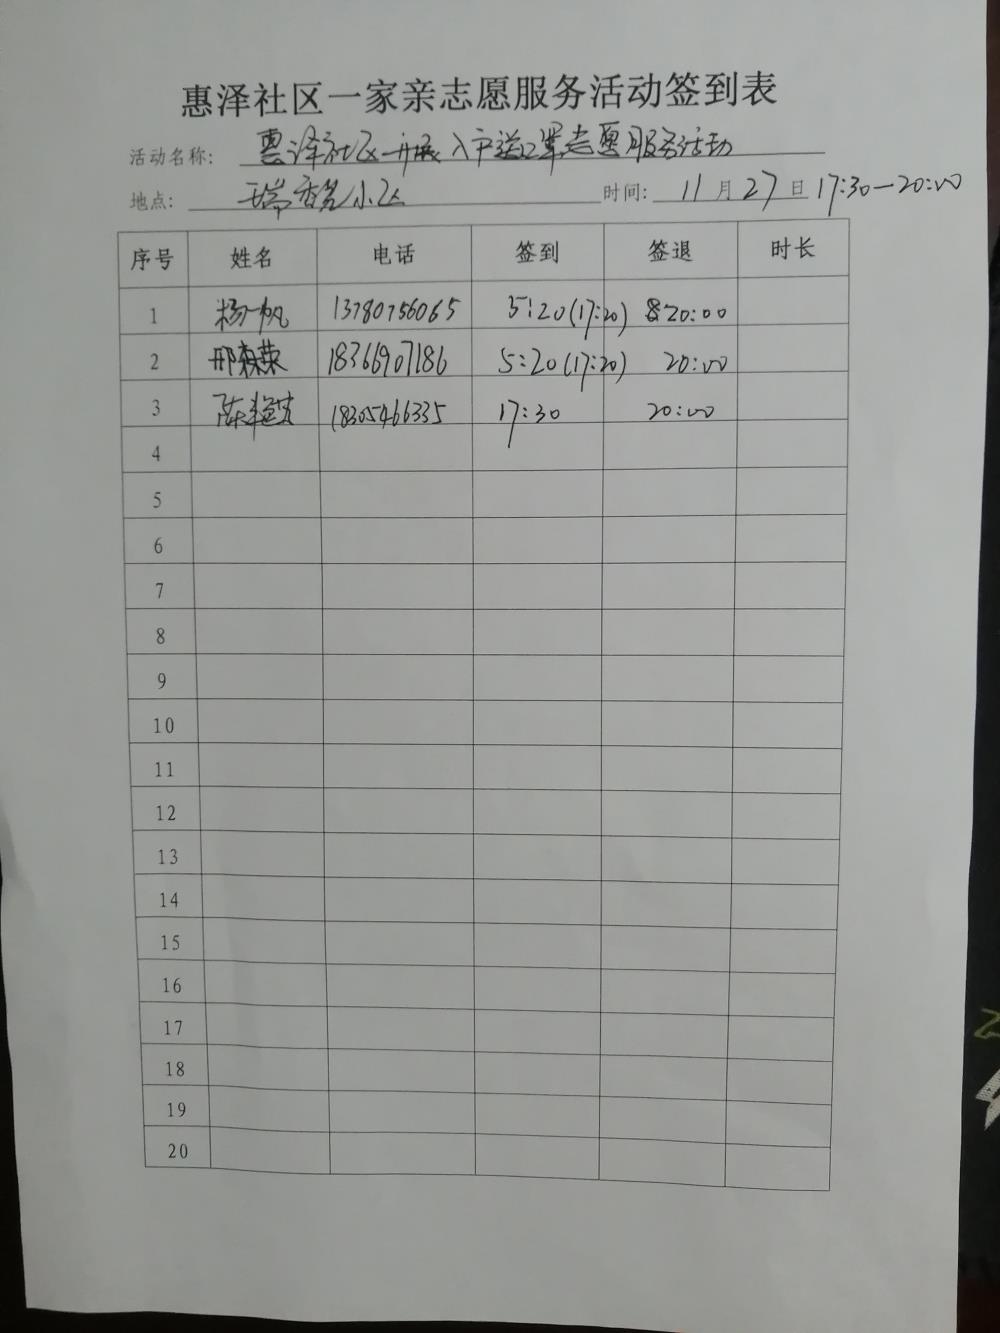 惠泽社区一家亲志愿服务活动签到表
活动名称: 惠泽社区开展入户送口罩志愿服务活动
地点: 瑞香苑小区 时间: 11月27日 17:30-20:00
序号 姓名 电话 签到 签退 时长
1 杨一帆 13780756065 5:20(17:20) 20:00
2 邢森荣 18366907186 5:20(17:20) 20:00
3 陈 18305466335 17:30 20:00
4
5
6
7
8
9
10
11
12
13
14
15
16
17
18
19
20